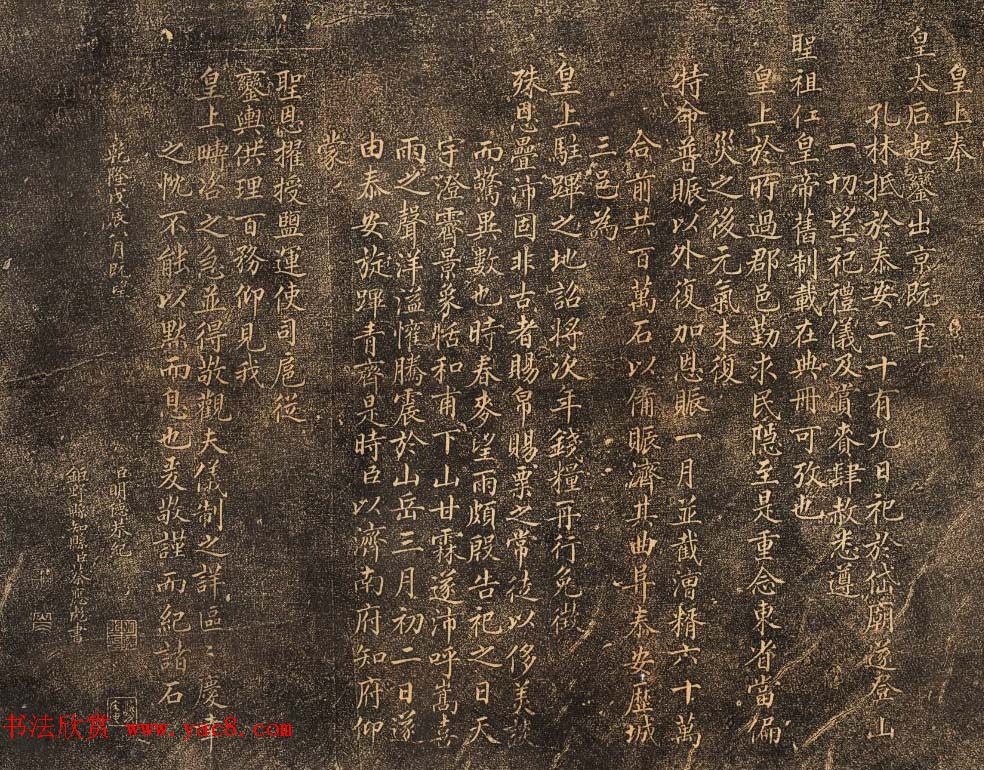 皇上奉
皇太后起鑾出京既幸
孔林抵於泰安二十有九日祀於岱廟遂登山
一切望祀禮儀及賞賚肆赦悉遵
聖祖仁皇帝舊制載在典冊可攷也
皇上於所過郡邑勤求民隱至是重念東省當偏
災之後元氣未復
特命普賑以外復加恩賑一月並截漕糈六十萬
合前共百萬石以備賑濟其曲阜泰安歷城
三邑為
皇上駐蹕之地詔將次年錢糧再行免徵
殊恩疊沛固非古者賜帛賜粟之常徒以侈美談
而驚異數也時春麥望雨頗殷告祀之日天
宇澄霽景象恬和甫下山甘霖遂沛呼嵩喜
雨之聲洋溢懽騰震於山岳三月初二日遂
由泰安旋蹕青齊是時臣以濟南府知府仰
蒙
聖恩擢授鹽運使司扈從
鑾輿供理百務仰見我
皇上疇咨之急並得敬觀夫儀制之詳區區慶幸
之忱不能以默而息也爰敬謹而紀諸石
乾隆戊辰八月既望
臣明德恭紀
鉅野縣知縣臣秦應虎書
书法欣赏 www.yac8.com